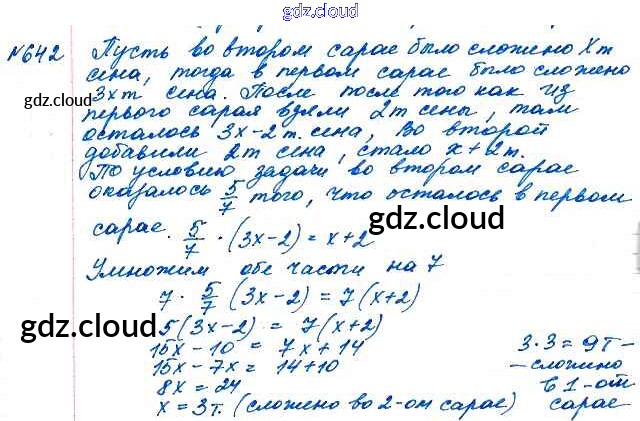 gdz.cloud
№642 Пусть во втором сарае было сложено Xт
сена, тогда в первом сарае было сложено
gdz.cloud
3xт сена. После после того как из
первого сарая взяли 2т сены, там
осталось 3x-2т. сена, Во второй
добавили 2т сена, стало x+2т.
По условию задачи во втором сарае
оказалось 5/7 того, что осталось в первом
сарае. 5/7 · (3x-2) = x+2
gdz.cloud
Умножим обе части на 7
7 · 5/7 (3x-2) = 7(x+2)
gdz.cloud
5(3x-2) = 7(x+2)
15x - 10 = 7x + 14
15x - 7x = 14+10
8x = 24
x = 3т. (сложено во 2-ом сарае)
3·3 = 9т-
-сложено
в 1-ом
сарае
gdz.cloud